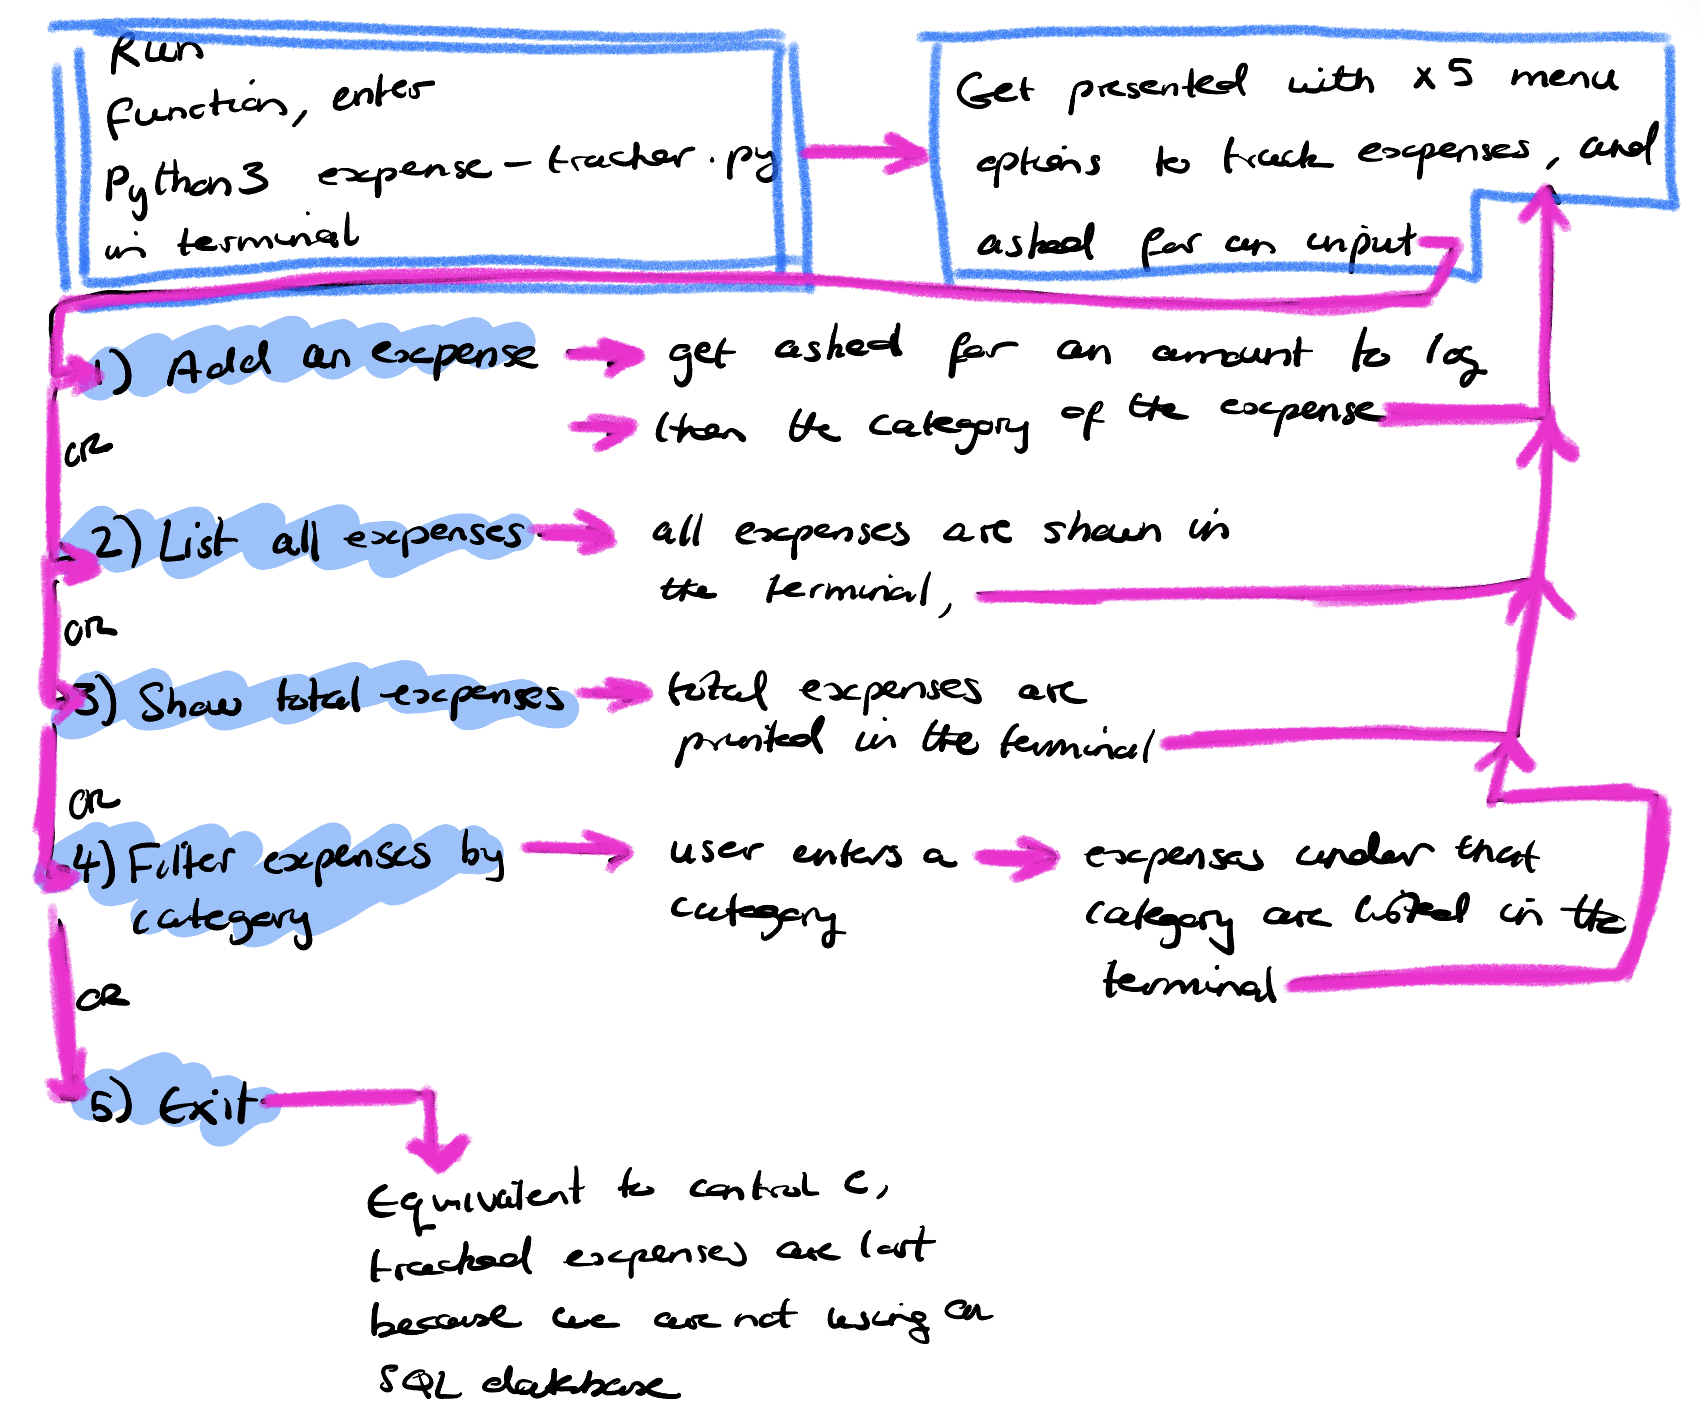 Run
Function, enter
Python3 expense-tracker.py
in terminal
Get presented with x5 menu
options to track expenses, and
asked for an input
1) Add an expense
get asked for an amount to log
then the category of the expense
OR
2) List all expenses
all expenses are shown in
the terminal,
OR
3) Show total expenses
total expenses are
printed in the terminal
OR
4) Filter expenses by
category
user enters a
category
expenses under that
category are listed in the
terminal
OR
5) Exit
Equivalent to control c,
tracked expenses are lost
because we are not using an
SQL database